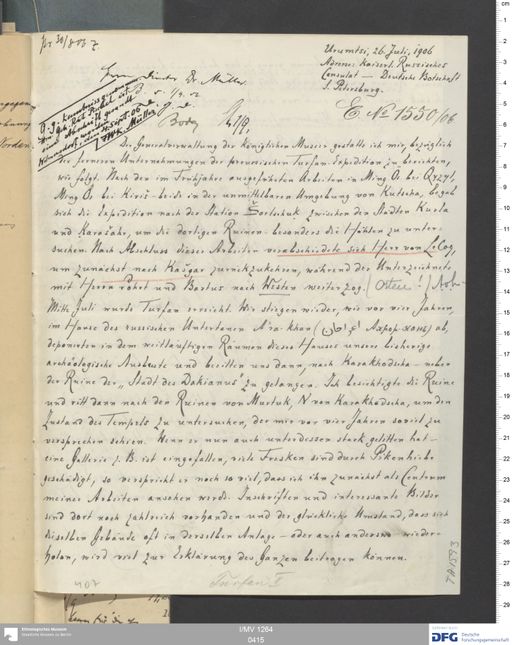 pr 30/8 06 Z.
Urumtsi, 26. Juli, 1906
Adresse: Kaiserl. Russisches
Consulat — Deutsche Botschaft
S. Petersburg.
Herrn Director Dr. Müller
E No 1550/06
Der Generalverwaltung der Königlichen Museen gestatte ich mir, bezüglich
der ferneren Unternehmungen der preussischen Turfan Expedition zu berichten,
wie folgt. Nach den im Frühjahre ausgeführten Arbeiten in Ming Ö. bei Qyzyl,
Ming Ö. bei Kiriš beide in der unmittelbaren Umgebung von Kutscha, begab
sich die Expedition nach der Station Šortschuk zwischen den Städten Kurla
und Karašahr, um die dortigen Ruinen besonders die Höhlen zu unter-
suchen. Nach Abschluss dieser Arbeiten verabschiedete sich Herr von LeCoq,
um zunächst nach Kašgar zurückzukehren, während der Unterzeichnete
mit Herrn Pohrt und Bartus nach Westen weiter zog. (Osten!)
Mitte Juli wurde Turfan erreicht. Wir stiegen wieder, wie vor vier Jahren,
im Hause des russischen Untertanen Ahrar khan ab,
deponierten in dem weitläuftigen Räumen dieses Hauses unsere bisherige
archäologische Ausbeute und beeilten uns dann, nach Karakhodscha - neben
der Ruine der „Stadt des Dakianus" zu gelangen. Ich besichtigte die Ruine
und ritt dann nach den Ruinen von Murtuk, N von Karakhodscha, um den
Zustand des Tempels zu untersuchen, der mir vor vier Jahren soviel zu
versprechen schien. Wenn er nun auch unterdessen stark gelitten hat —
eine Gallerie z. B. ist eingefallen, viele Fresken sind durch
geschädigt, so verspricht er noch so viel, dass ich ihn zunächst als Centrum
meiner Arbeiten ansehen werde. Inschriften und interessante Bilder
sind dort noch zahlreich vorhanden und der glückliche Umstand, dass sich
dieselben Gebäude oft in derselben Anlage — oder auch anderswo wieder-
holen, wird viel zur Erklärung des Ganzen beitragen können.
407
Turfan I
TA 1593
Ethnologisches Museum
Staatliche Museen zu Berlin
I/MV 1264
0415
DFG
Deutsche
Forschungsgemeinschaft